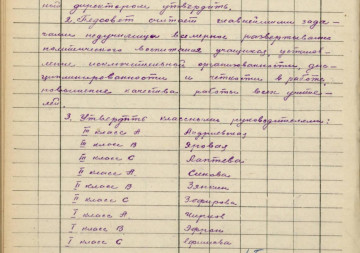 ный директором утвердить.
2. Педсовет считает главнейшими зада-
чами педучилища всемерное развертывание
политического воспитания учащихся, установ-
ление исключительной организованности, дис-
циплинированности и четкости в работе,
повышение качества работы всех учите-
лей.
3. Утвердить классными руководителями:
III класс А
III класс В Яровая
III класс С Лаптева
II класс А Синева
II класс В Зяткин
II класс С Зефирова
I класс А.
I класс В
I класс С Ефимова